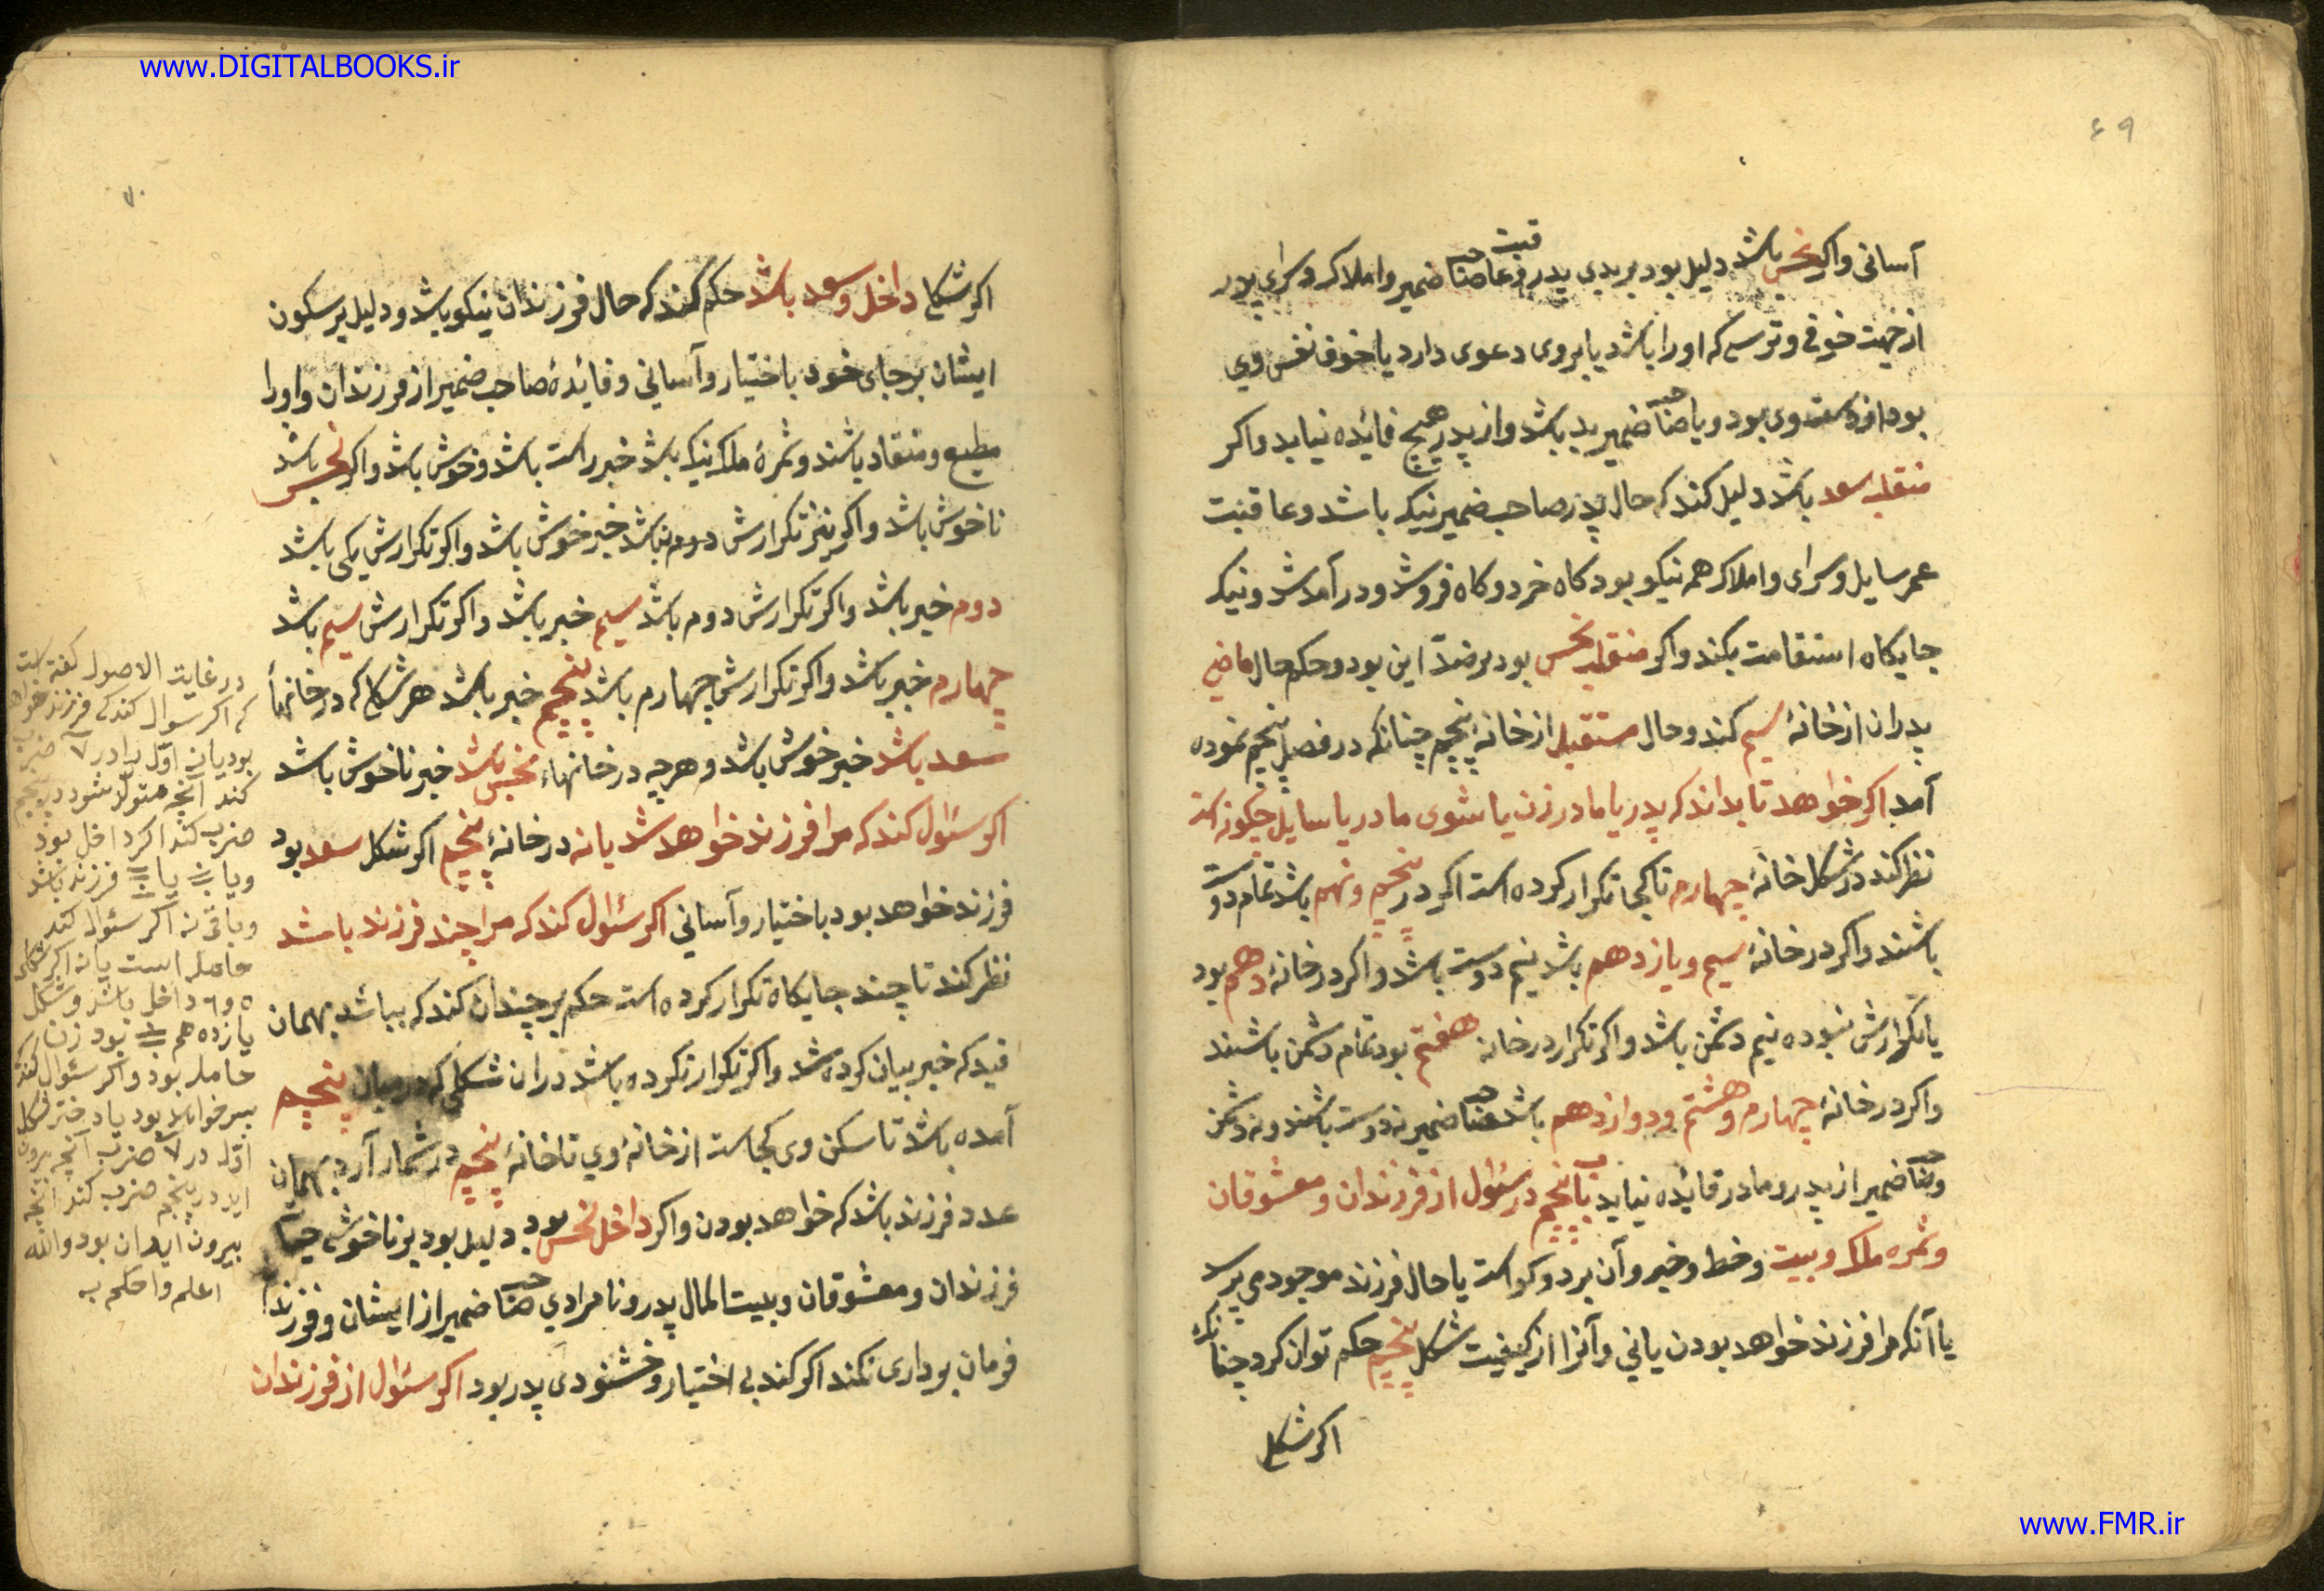 www.DIGITALBOOKS.ir
۶۹
آسانی واکر نحس باشد دلیل بود بر بدی پدر وعاقبت صاحب ضمیر واملاک وسرای پدر
از جهت خوفی وترسی که اورا باشد یا بروی دعوی دارد یا خوف نفس وی
بود از دست وی بود ویا صاحب ضمیر بد باشد واز پدر هیچ فائده نیابد واکر
منقلب سعد باشد دلیل کند که حال پدر صاحب ضمیر نیک باشد وعاقبت
عمر سایل وسرای واملاک هم نیکو بود کاه خرد وکاه فروشد ودرآمدش ونیک
جایکاه استقامت بکند واکر منقلب نحس بود بر ضدّ این بود وحکم حال ماضی
پدران از خانهٔ سیم کند وحال مستقبل از خانهٔ پنجم چنانکه در فصل پنجم نموده
آمد اکر خواهد تا بداند که پدر یا مادر زن یا شوی مادر با سایل چکونه اند
نظر کند در شکل خانهٔ چهارم تا کجا تکرار کرده است اکر در پنجم ونهم باشد تمام دوست
باشند واکر در خانهٔ سیم ویازدهم باشد نیم دوست باشد واکر در خانهٔ دهم بود
یا تکرارش نبوده نیم دشمن باشد واکر تکرار در خانه هفتم بود تمام دشمن باشند
واکر در خانهٔ چهارم وهشتم ودوازدهم باشد صاحب ضمیر نه دوست باشند ونه دشمن
وصاحب ضمیر از پدر ومادر فائده نیابد باب پنجم در سئوال از فرزندان ومعشوقان
وثمره ملک وبیت وخط وخبر وآن بر دو کواست یا حال فرزند موجود می پرسد
یا آنکه مرا فرزند خواهد بودن یا نی وآنرا از کیفیت شکل پنجم حکم توان کرد چنانکه
اکر شکل
www.FMR.ir
۷۰
اکر شکل داخل وسعد باشد حکم کند که حال فرزندان نیکو باشد ودلیل بر سکون
ایشان بر جای خود باختیار وآسانی وفائدهٔ صاحب ضمیر از فرزندان واورا
مطیع ومنقاد باشند وثمرهٔ ملک نیک باشد خبر راست باشد وخوش باشد واکر نحس باشد
ناخوش باشد واکر نیز تکرارش دوم نباشد خبر خوش باشد واکر تکرارش یکی باشد
دوم خبر باشد واکر تکرارش دوم باشد سیم خبر باشد واکر تکرارش سیم باشد
چهارم خبر باشد واکر تکرارش چهارم باشد پنجم خبر باشد هر شکل که در خانهاء
سعد باشد خبر خوش باشد وهرچه در خانهاء نحس باشد خبر ناخوش باشد
اکر سئوال کند که مرا فرزند خواهد شد یا نه در خانهٔ پنجم اکر شکل سعد بود
فرزند خواهد بود باختیار وآسانی اکر سئوال کند که مرا چند فرزند باشد
نظر کند تا چند جایکاه تکرار کرده است حکم بر چندان کند که بباشد بهمان
قید که خبر بیان کرده شد واکر تکرار نکرده باشد دران شکل که در میان پنجم
آمده باشد تا سکن وی کجاست از خانهٔ وی تا خانهٔ پنجم در شمار آرد بهمان
عدد فرزند باشد که خواهد بودن واکر داخل نحس بود دلیل بود بر ناخوشی حیات
فرزندان ومعشوقان وبیت المال پدر ونامرادی صاحب ضمیر از ایشان وفرزند
فرمان برداری نکند اکر کند بی اختیار وخشنودی پدر بود اکر سئوال از فرزندان
در غایت الاصول کفته است
که اکر سوال کند که فرزند خواهد
بود یا نه اوّل را در ۷ ضرب
کند آنچه متولّد شود در پنجم
ضرب کند اکر داخل بود
ویا یا فرزند باشد
وباقی نه اکر سئوال کند
حامله است یا نه اکر شکل
۵ و۶ داخل باشد وشکل
یازدهم بود زن
حامله بود واکر سئوال کند
پسر خواهد بود یا دختر شکل
اوّل در ۷ ضرب آنچه بیرون
اید در پنجم ضرب کند آنچه
بیرون اید ان بود والله
اعلم واحکم به